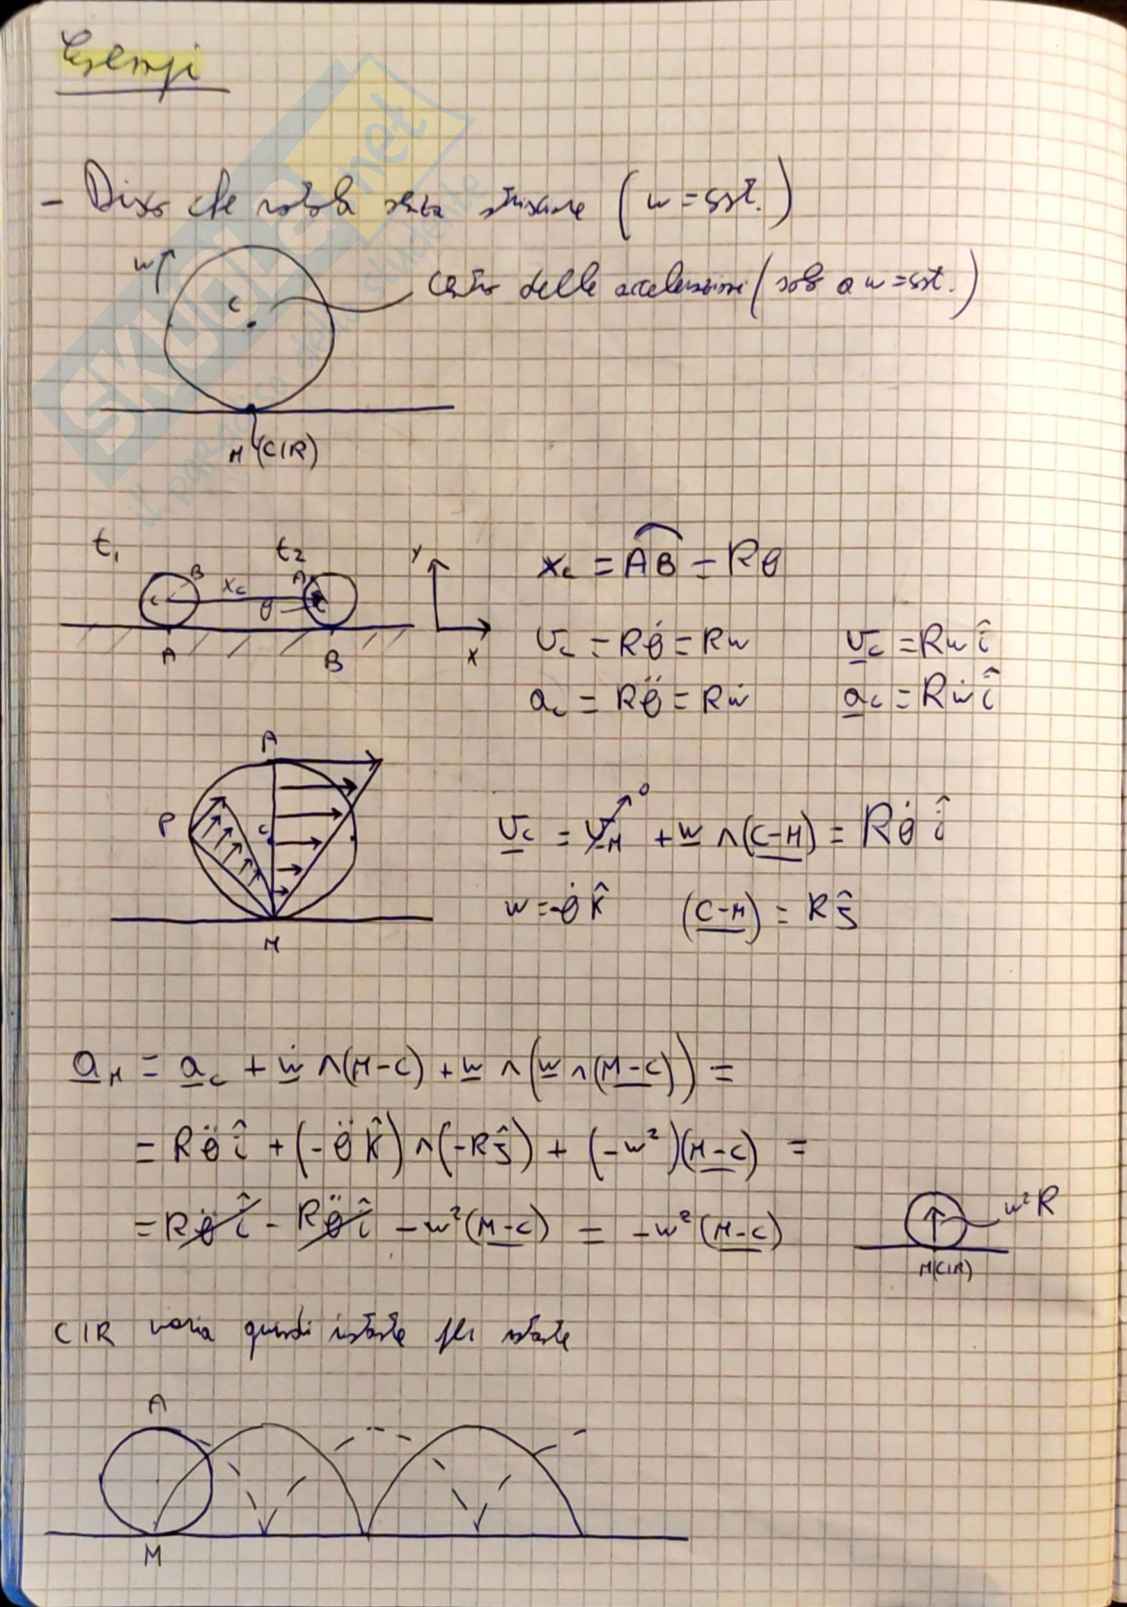 Esempi
- Disco che rotola senza strisciare (ω = cost.)
ω
C
Centro delle accelerazioni (solo a ω = cost.)
M (CIR)
t₁ t₂
B x_c A θ C
A B
Y X
x_c = A͡B = Rθ
v_c = Rθ̇ = Rω v_c = Rω î
a_c = Rθ̈ = Rω̇ a_c = Rω̇ î
A
P C
M
v_c = v_M → 0 + ω ∧ (C-M) = Rθ̇ î
ω = -θ̇ k̂ (C-M) = R ĵ
a_M = a_c + ω̇ ∧ (M-C) + ω ∧ (ω ∧ (M-C)) =
= Rθ̈ î + (-θ̈ k̂) ∧ (-R ĵ) + (-ω²)(M-C) =
= Rθ̈ î - Rθ̈ î - ω²(M-C) = -ω²(M-C)
ω²R
M(CIR)
CIR varia quindi istante per istante
A
M
SKUOLA.net